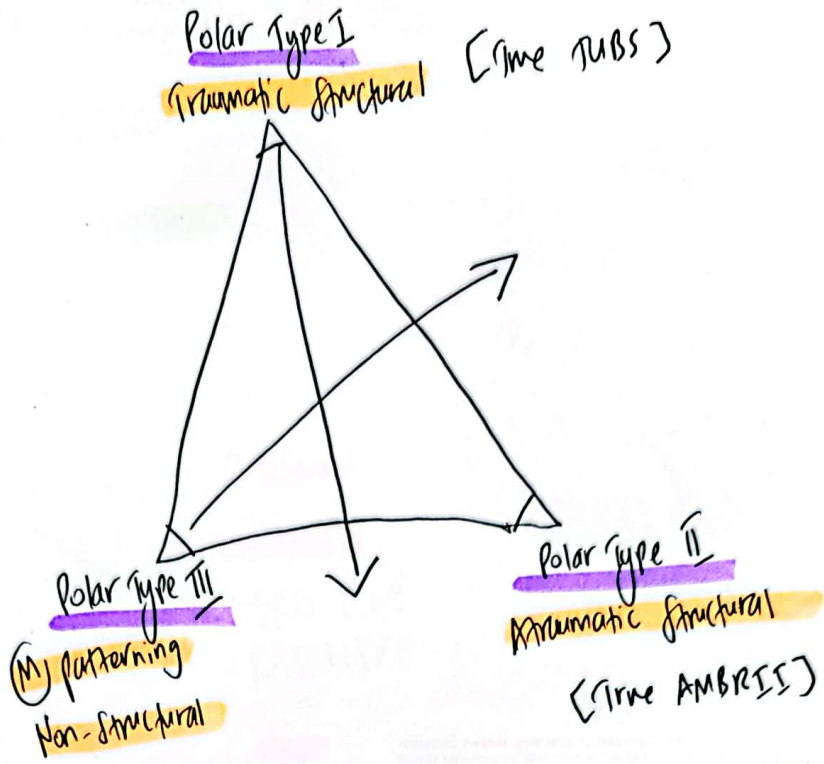 Polar Type I
[True TUBS]
Traumatic Structural
Polar Type III
(M) patterning
Non-Structural
Polar Type II
Atraumatic Structural
[True AMBRII]